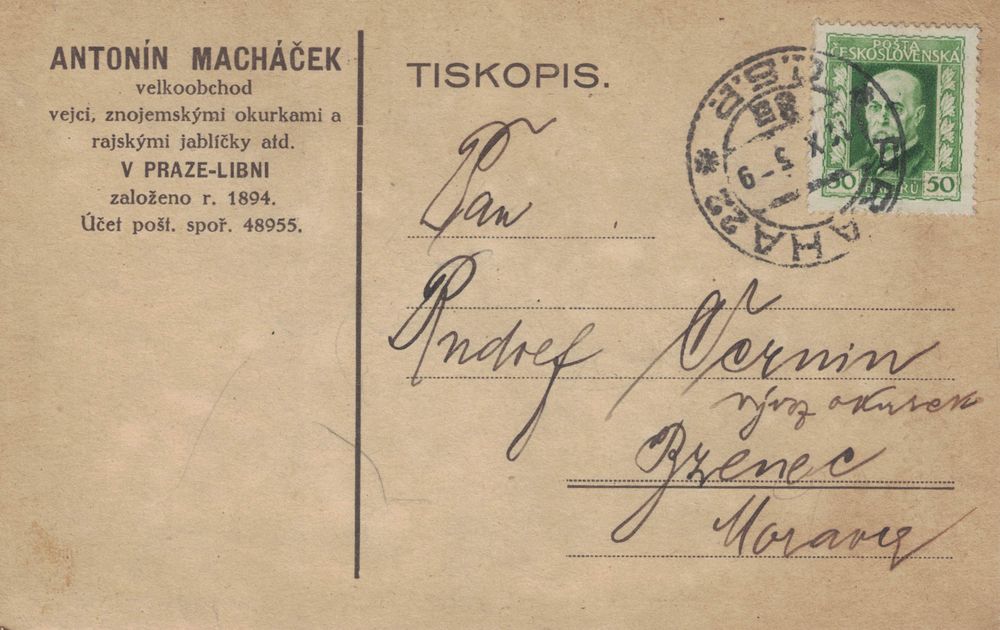 ANTONÍN MACHÁČEK
velkoobchod
vejci, znojemskými okurkami a
rajskými jablíčky atd.
V PRAZE-LIBNI
založeno r. 1894.
Účet pošt. spoř. 48955.
TISKOPIS.
POŠTA
ČESKOSLOVENSKA
50 50
PRAHA 22
Pan
Rudolf Černín
vývoz okurek
Bzenec
Morava